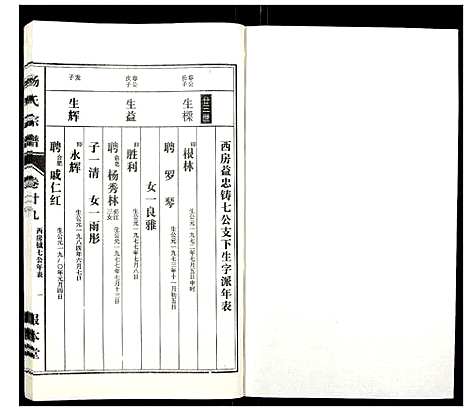 西房益忠铸七公支下生字派年表
廿三世
生樑
即根林
生公元一九七二年二月五日申时
聘 罗琴
生公元一九七三年十一月初五日
女一良雅
生益
即胜利
生公元一九七七年七月八日
聘 杨秀林
生公元一九七七年七月十二日
子一清 女一雨彤
生辉
即永辉
生公元一九八四年六月七日
聘 合肥 戚仁红
生公元一九八〇年元月四日
杨氏宗谱
卷廿九
西房铖七公年表
一
报本堂